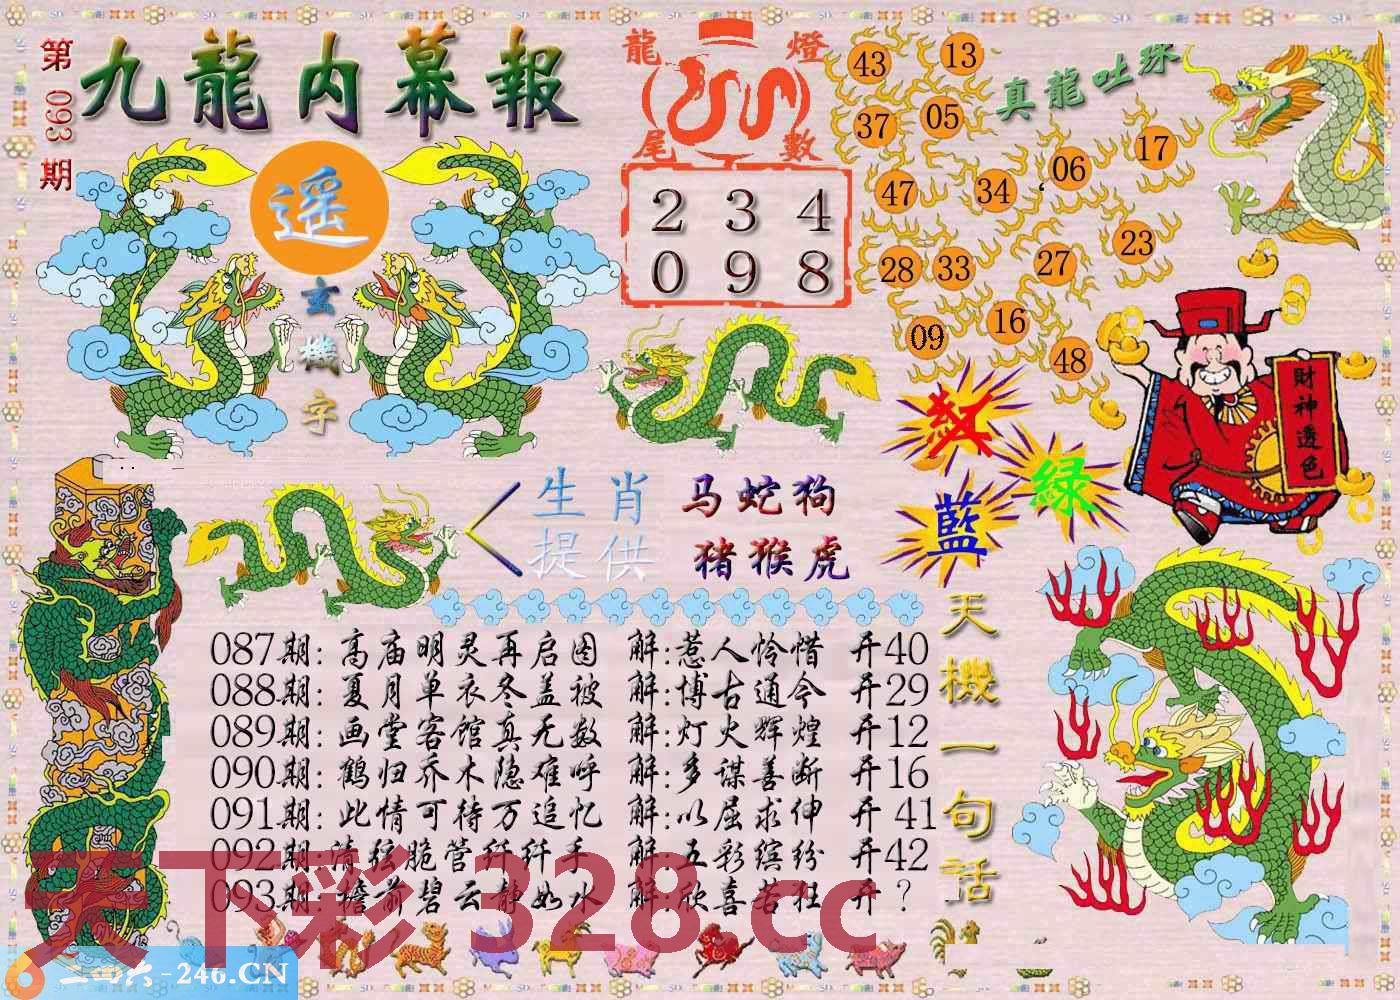 第093期
九龍内幕報
遥
玄機字
龍燈
尾數
2 3 4
0 9 8
真龍吐珠
43 13
37 05
06 17
47 34
23
28 33 27
09 16
48
红
绿
藍
財神透色
生肖 马蛇狗
提供 猪猴虎
天機一句話
087期:高庙明灵再启图 解:惹人怜惜 开40
088期:夏月单衣冬盖被 解:博古通今 开29
089期:画堂客馆真无数 解:灯火辉煌 开12
090期:鹤归乔木隐难呼 解:多谋善断 开16
091期:此情可待万追忆 解:以屈求伸 开41
092期:清弦脆管纤纤手 解:五彩缤纷 开42
093期:檐前碧云静如水 解:欣喜若狂 开?
天下彩 328.cc
二四六-246.CN